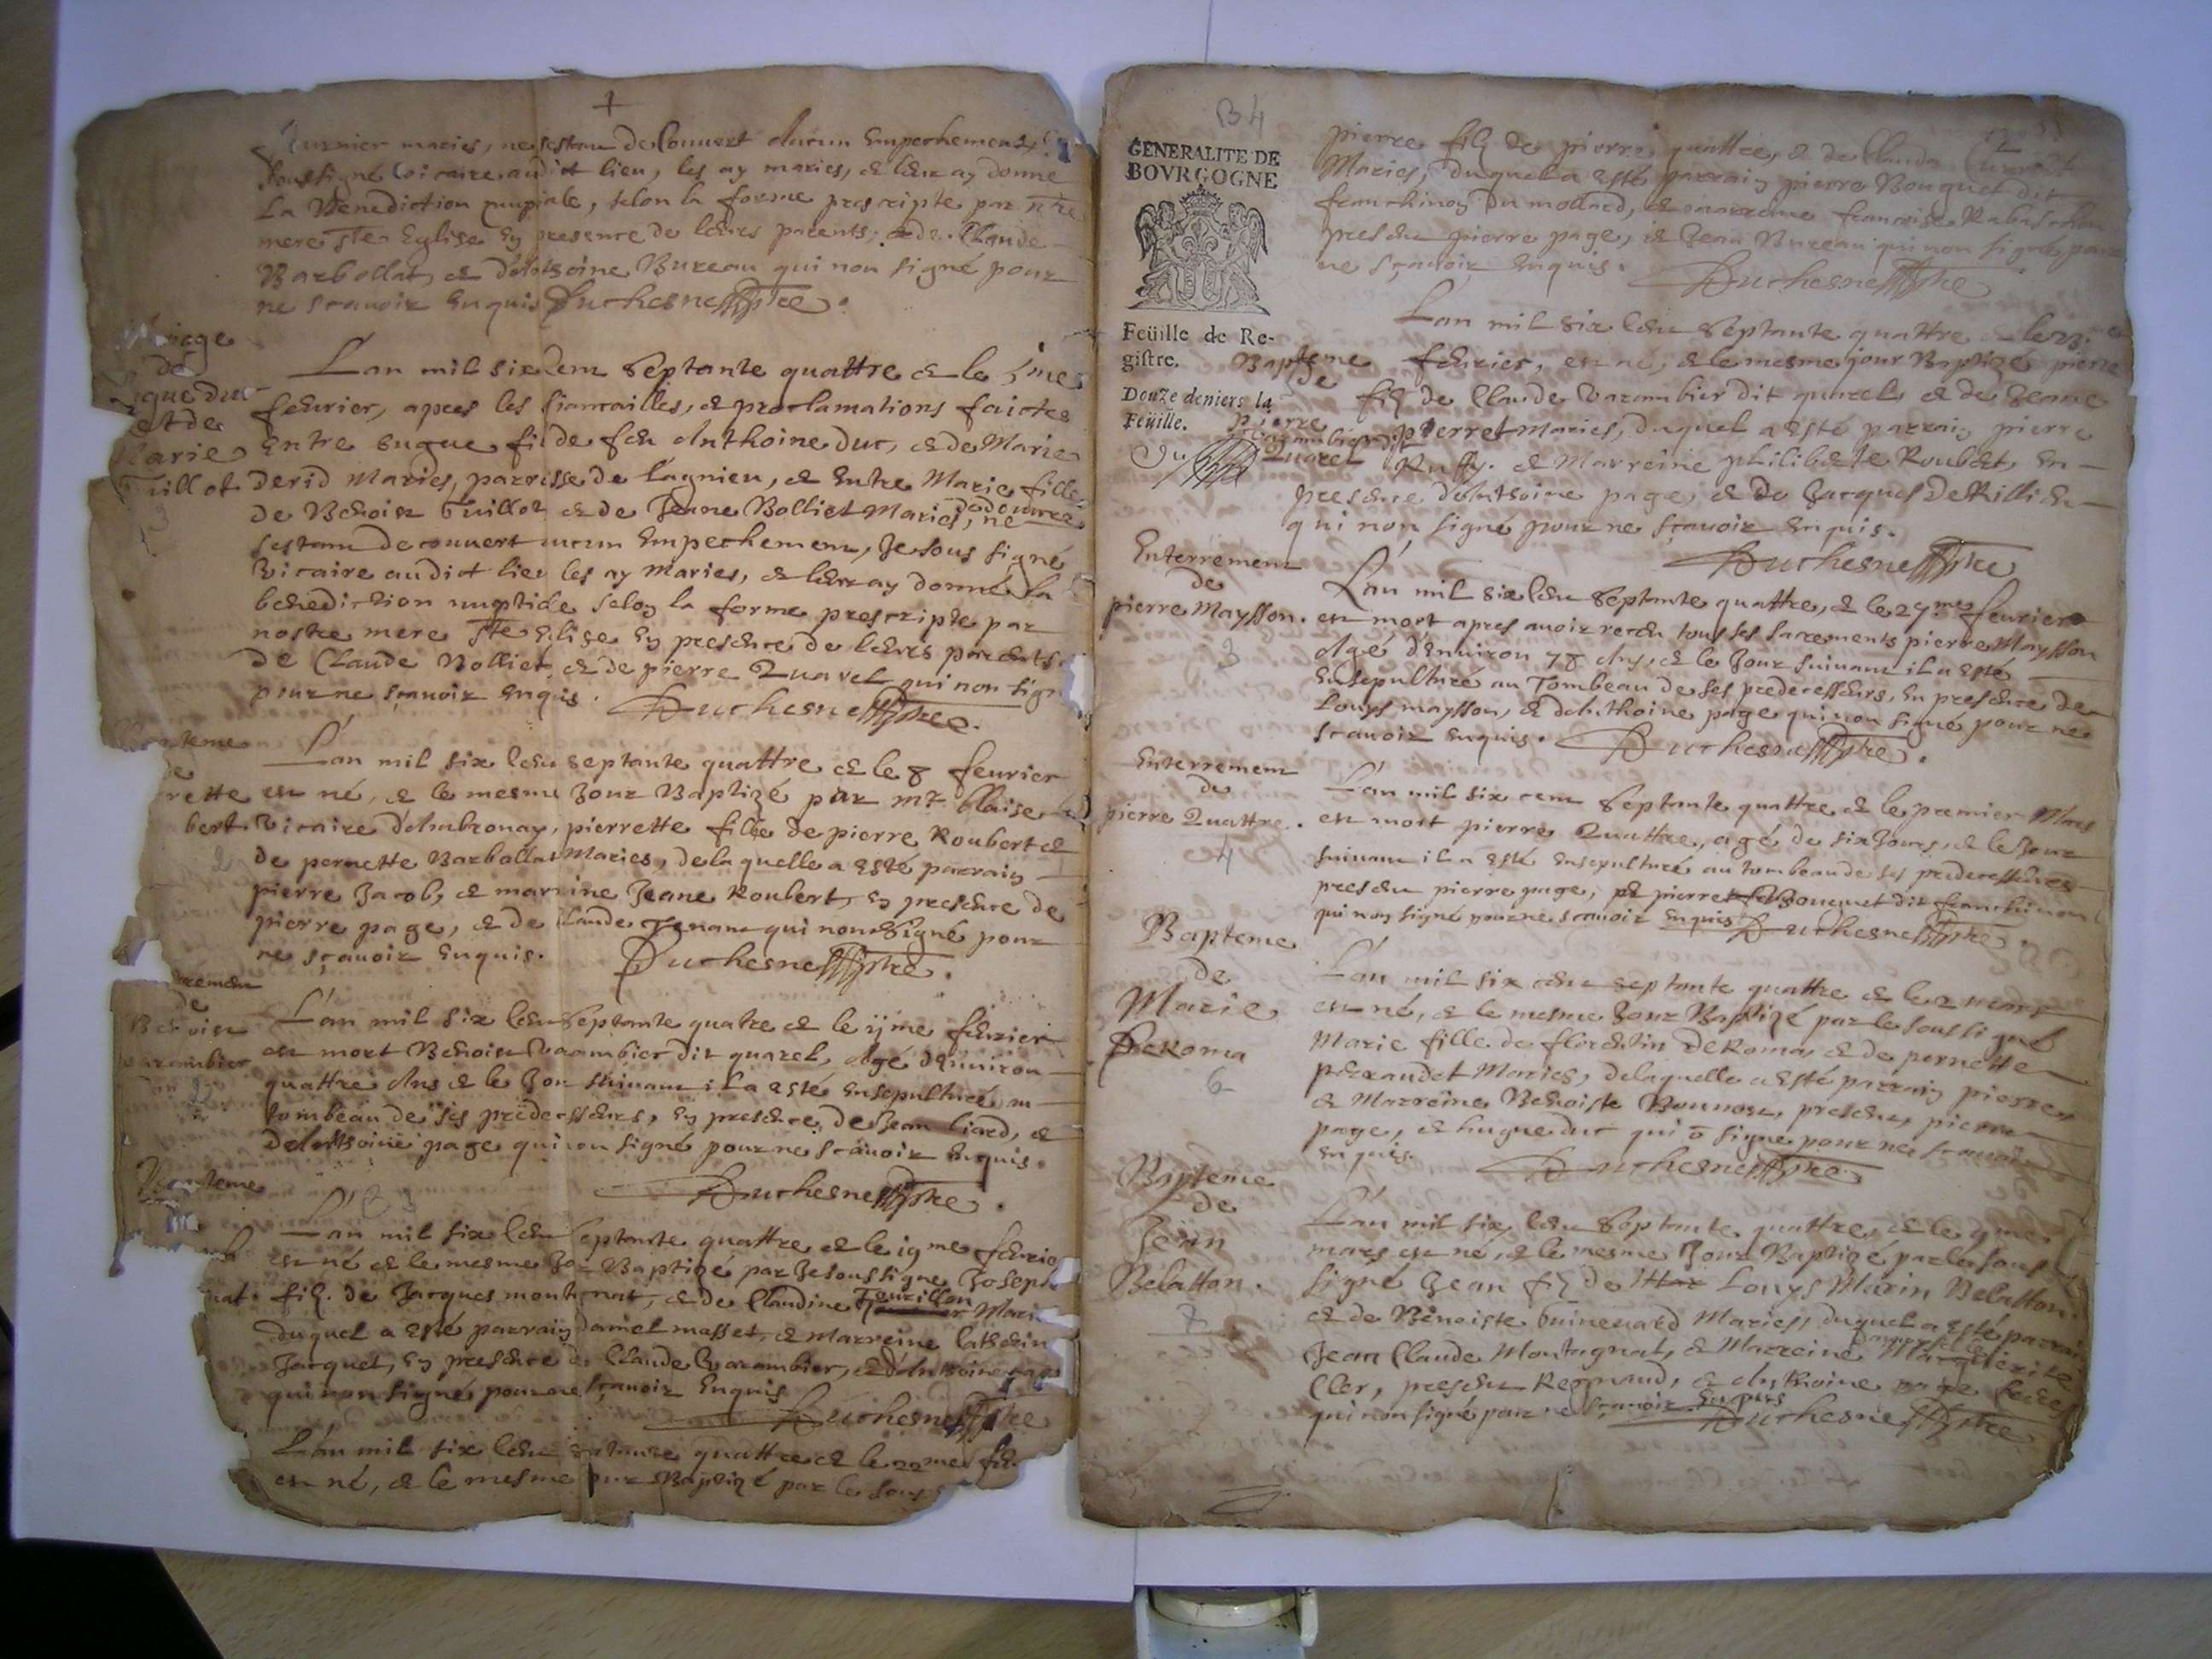 +
nurnier maries, ne sestant decouvert aucun Empechement,
soussigné vicaire audict lieu, les ay maries, & leur ay donné
La Benediction nuptiale, selon la forme prescripte par nre
mere ste Eglise En presence de leurs parents, & de Claude
Barbollat, & d'Anthoine Bureau qui non signé pour
ne scavoir Enquis Duchesne ptre.
riage
de
gue duc
et de
Marie
Tuillot
L'an mil six Cent Septante quattre & le 5me
febvrier, apres les fiancailles, & proclamations faictes
Entre Eugue fil de feu Anthoine duc, & de Marie
derid Maries, parrisse de Lagnieu, & Entre Marie fille
de Benoist Tuillot & de Jeane Bolliet Maries, ne
sestant decouvert aucun Empechement, Je sous signé
vicaire audict lieu les ay maries, & leur ay donné la
benediction nuptiale selon la forme prescripte par
nostre mere ste Eglise En presence de leurs parents
de Claude Bolliet, & de pierre Quarel qui non sign
pour ne scavoir enquis. Duchesne ptre.
teme
de
rette
bert.
2
L'an mil six Cent septante quattre & le 8 fevrier
est né, & le mesme Jour Baptizé par mr blaise
vicaire d'Ambronay, pierrette fille de pierre Roubert &
de pernette Barbollat Maries, de laquelle a esté parrain
pierre Jacob, & marrine Jeane Roubert, En presence de
pierre page, & de Claude Tenant qui non signé pour
ne sçavoir Enquis. Duchesne ptre.
rement
de
Benoist
varambier
L'an mil six Cent Septante quatre & le ijme febvrier
est mort Benoist Varambier dit quarel, Agé d'Environ
quattre Ans & le Jour suivant il a esté Ensepulturé au
tombeau de ses predecesseurs, En presence de Jean liard, &
d'Anthoine page qui non signé pour ne scavoir Enquis.
Duchesne ptre.
Bapteme
nat.
L'an mil six Cent Septante quattre & le 19me febvrie
est né & le mesme Jour Baptizé par Je soussigné Joseph
filz. de Jacques montanat, & de Claudine Tenrillon Marie
duquel a esté parrain daniel masset, & Marreine Catherin
Jacquet, En presence de Claude Varambier, & d'Anthoine page
qui non signé pour ne sçavoir Enquis
Duchesne ptre
L'an mil six Cent septante quattre & le 22me fe
est né, & le mesme Jour Baptizé par le sous
134
GENERALITE DE
BOVRGOGNE
Feüille de Re-
gistre.
Douze deniers la
Feüille.
pierre filz de pierre quattre, & de Clauda
Maries, duquel a esté parrain pierre Bouquet dit
franchinon du mollard, & marreine francoise Rabaschon
present pierre page, & Jean Bureau qui non signé, pour
ne sçavoir Enquis. Duchesne ptre
Bapteme
de
Pierre
varambier dit
Quarel
L'an mil six Cent Septante quattre & le 23me
febvrier, est né, & le mesme jour Baptizé pierre
filz de Claude Varambier dit quarel, & de Jeane
pierret Maries, duquel a esté parrain pierre
Ruffy. & Marreine philiberte Roubert, En
presence d'Anthoine page, & de Jacques de Rillieu
qui non signé pour ne sçavoir Enquis.
Duchesne ptre
Enterrement
de
pierre Maysson.
3
L'an mil six Cent Septante quattre, & le 27.me fevrier
est mort apres avoir receu tous ses sacrements pierre Maysson
Agé d'Environ 78 Ans, & le Jour suivant il a esté
Ensepulturé au Tombeau de ses predecesseurs, En presence de
Louys maysson, & d'Anthoine page qui non signé pour ne
scavoir Enquis. Duchesne ptre.
Enterrement
de
pierre Quattre.
4
L'an mil six cent Septante quattre & le premier Mars
est mort pierre Quattre, agé de six Jours, & le Jour
suivant il a esté ensepulturé au tombeau de ses predecesseurs
present pierre page, & pierre Bouquet dit franchinon
qui non signé pour ne scavoir Enquis Duchesne ptre.
Bapteme
de
Marie
DeRoma
6
L'an mil six cent septante quattre & le 2 mars
est né, & le mesme Jour Baptizé par le soussigné
Marie fille de florentin DeRoma, & de pernette
peraudet Maries, de laquelle a esté parrain pierre
& Marreine Benoiste Bonnost, present, pierre
page, & hugue duc qui ō signe pour ne scavoir
Enquis. Duchesne ptre
Bapteme
de
Jean
Belatton.
7
L'an mil six Cent Septante quattre, & le 9me
mars est né, & le mesme Jour Baptizé par le sous
signé Jean filz de Louys Marin Belatton.
& de Benoiste Guinevard Maries, duquel a esté parrain
Jean Claude Montagnat, & Marreine
Cler, present Reymond, & Anthoine page
qui non signé pour ne scavoir Enquis
Duchesne ptre